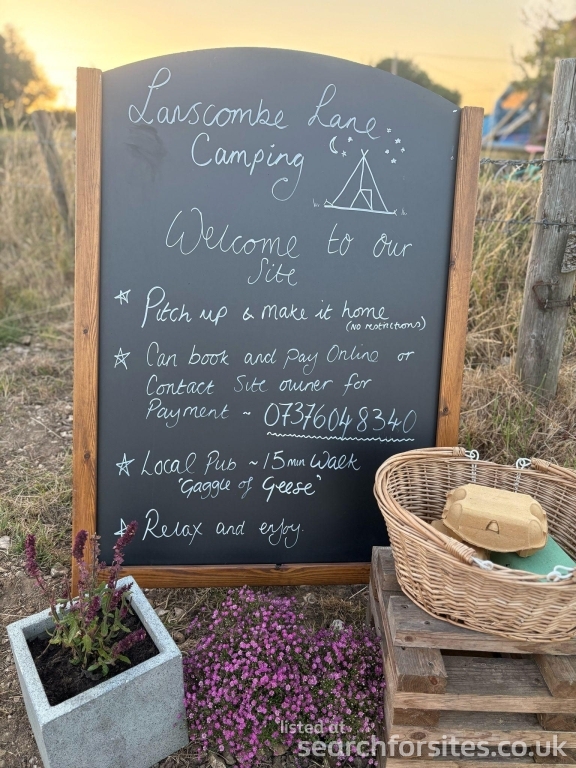 Lanscombe Lane
Camping
Welcome to our
Site
Pitch up & make it home
(NO restrictions)
Can book and pay Online or
Contact Site owner for
Payment ~ 07376048340
Local Pub ~ 15 min Walk
"Gaggle of Geese"
Relax and enjoy.
listed at
searchforsites.co.uk